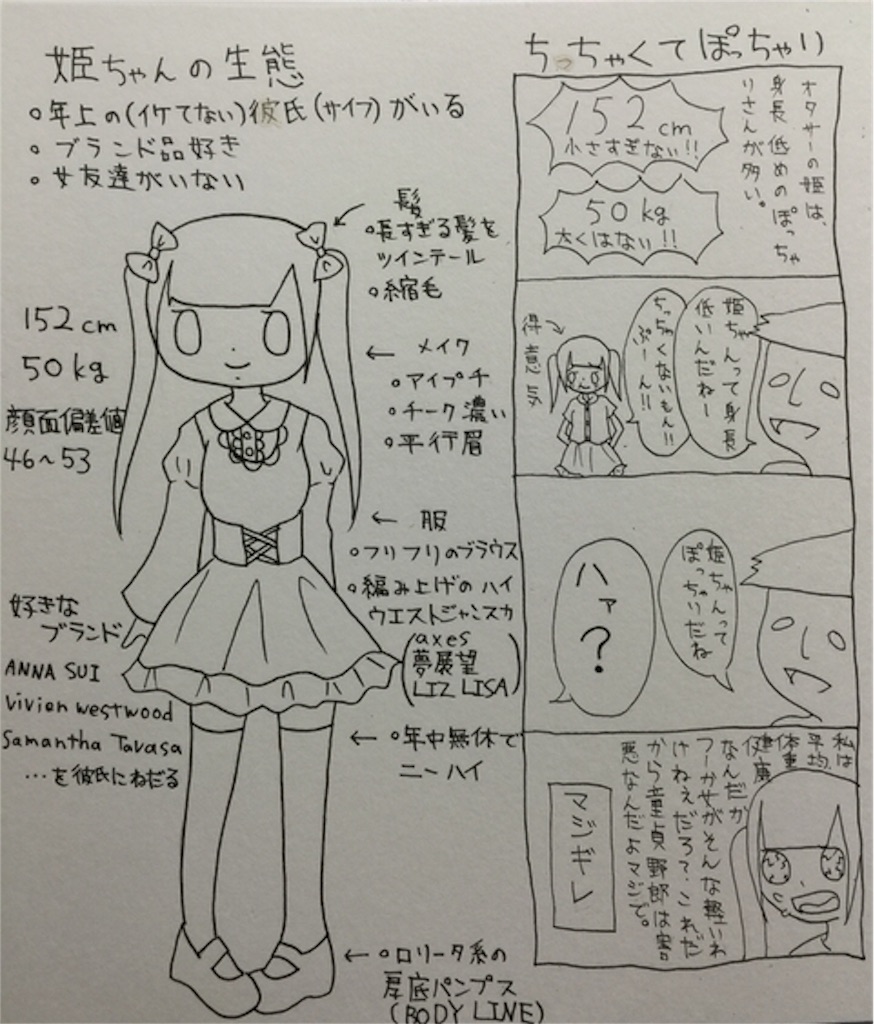 姫ちゃんの生態
○年上の(イケてない)彼氏(サイフ)がいる
○ブランド品好き
○女友達がいない
髪
○長すぎる髪を
ツインテール
○縮毛
152cm
50kg
顔面偏差値
46~53
メイク
○アイプチ
○チーク濃い
○平行眉
服
○フリフリのブラウス
○編み上げのハイ
ウエストジャンスカ
(axes
夢展望
LIZ LISA)
好きな
ブランド
ANNA SUI
Vivien westwood
Samantha Tavasa
…を彼氏にねだる
○年中無休で
ニーハイ
○ロリータ系の
厚底パンプス
(BODY LINE)
ちっちゃくてぽっちゃり
オタサーの姫は、
身長低めのぽっちゃ
りさんが多い。
152cm
小さすぎない!!
50kg
太くはない!!
姫ちゃんって身長
低いんだねー
ちっちゃくないもん!!
ぷーん!!
得意気
姫ちゃんって
ぽっちゃりだね
ハァ?
私は
平均
体重
健康
なんだか
フーか女がそんな軽いわ
けねぇだろ?これだ
から童貞野郎は害
悪なんだよマジで。
マジギレ